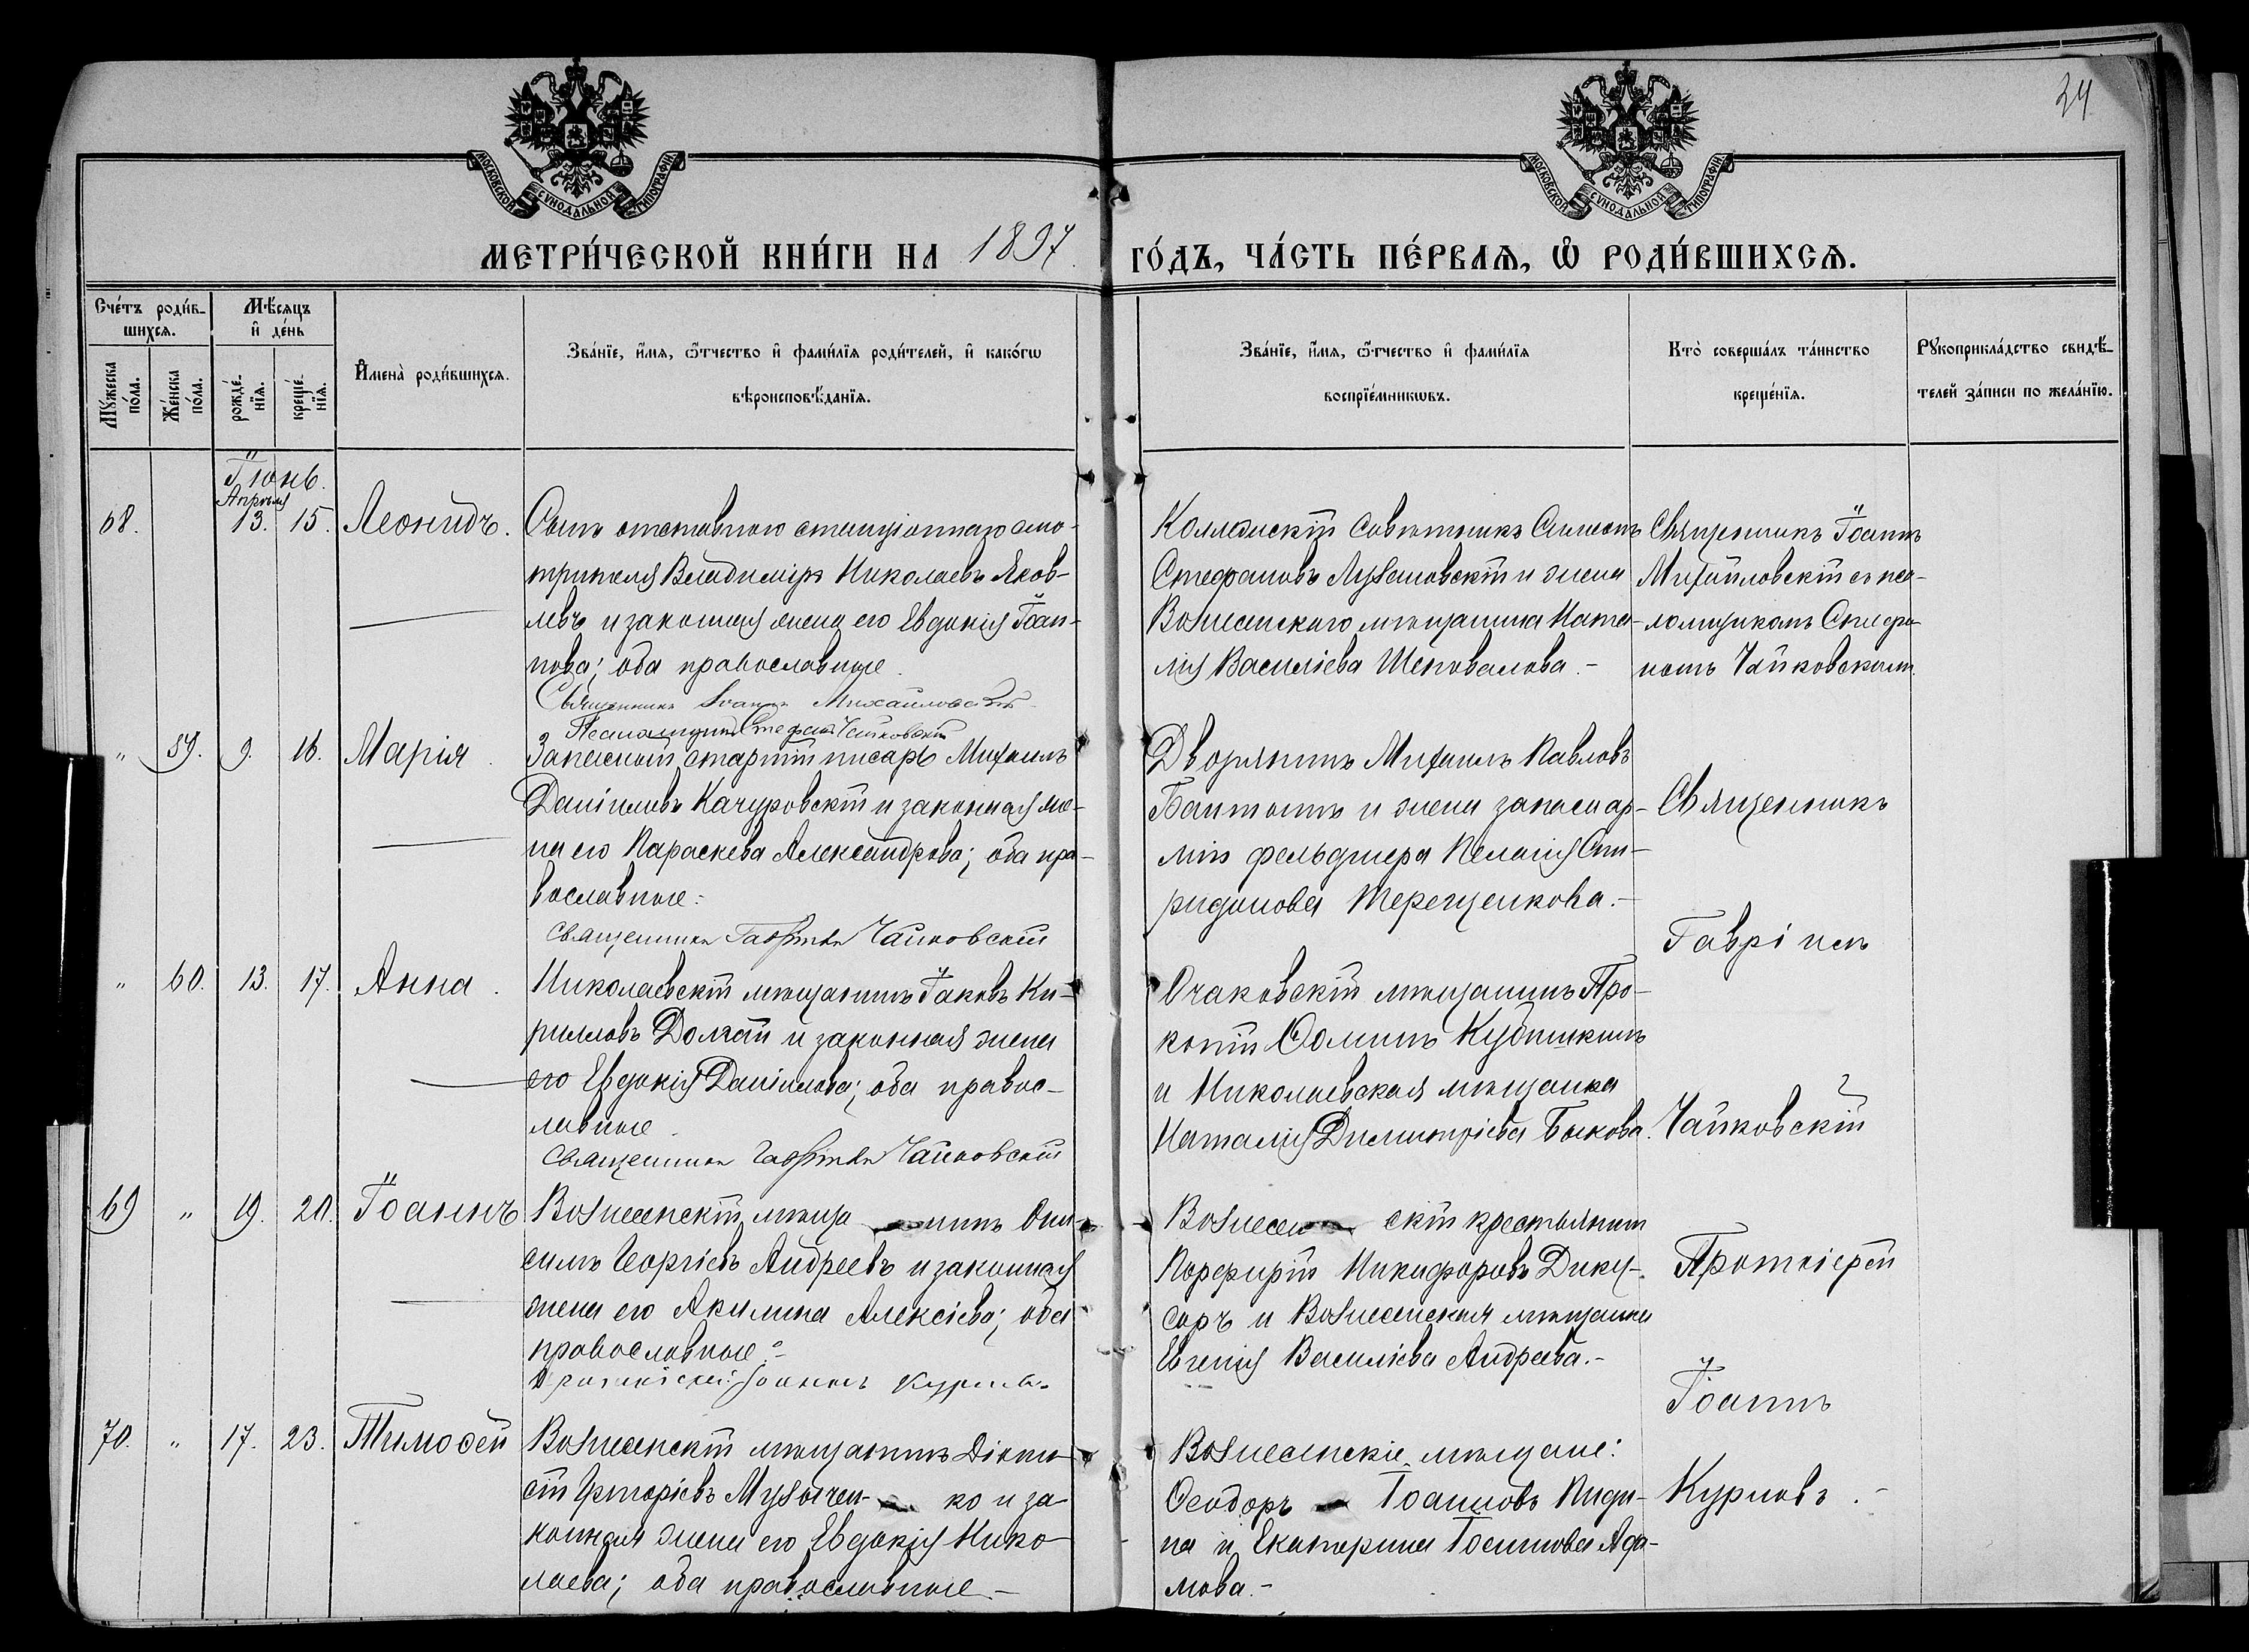 24
МОСКОВСКОЙ СѴНОДАЛЬНОЙ ТИПОГРАФІИ
МОСКОВСКОЙ СѴНОДАЛЬНОЙ ТИПОГРАФІИ
МЕТРИ́ЧЕСКОЙ КНИ́ГИ НА 1897 ГО́ДЪ, ЧА́СТЬ ПЕ́РВАѦ, Ѡ РОДИ́ВШИХСѦ.
Сче́тъ роди́в-
шихсѧ.
Му́жеска по́ла.
Же́нска по́ла.
Мѣ́сяцъ и де́нь
рожде́-нїѧ.
креще́-нїѧ.
И҆мена̀ роди́вшихсѧ.
Зва́нїе, и҆́мѧ, ѻ҆́тчество и҆ фами́лїѧ роди́телей, и҆ како́гѡ
вѣроисповѣ́данїѧ.
Зва́нїе, и҆́мѧ, ѻ҆́тчество и҆ фами́лїѧ
воспрїе́мникѡвъ.
Кто̀ соверша́лъ та́инство
креще́нїѧ.
Рꙋкоприкла́дство свидѣ́-
телей за́писи по жела́нїю.
Іюнь.
Апрѣля
68. 13. 15. Леонидъ.
Сынъ отставного станціоннаго смо-
трителя Владиміръ Николаевъ Яков-
левъ и законная жена его Евдокія Іоан-
нова; оба православные
Священникъ Іоаннъ Михайловскій
Псаломщикъ Стефанъ Чайковскій
Коллежскій Совѣтникъ Симеонъ
Стефановъ Лузановскій и жена
Вознесенскаго мѣщанина Ната-
лія Василіева Шеповалова.-
Священникъ Іоаннъ
Михайловскій съ пса-
ломщикомъ Стефа-
номъ Чайковскимъ.
" 59. 9. 16. Марія.
Запасный старшій писарь Михаилъ
Даніиловъ Качуровскій и законная же-
на его Параскева Александрова; оба пра-
вославные.-
Священникъ Гавріилъ Чайковскій
Дворянинъ Михаилъ Павловъ
и жена запаснар-
міи фельдшера Пелагія Спи-
ридонова Терещенкова.-
Священникъ
Гавріилъ
Чайковскій
" 60. 13. 17. Анна.
Николаевскій мѣщанинъ Іаковъ Ки-
рилловъ Долгій и законная жена
его Евдокія Даніилова; оба правос-
лавные.
Священникъ Гавріилъ Чайковскій
Очаковскій мѣщанинъ Про-
копій Ѳоминъ Кубышкинъ
и Николаевская мѣщанка
Наталія Димитріева Быкова.
69 " 19. 20. Іоаннъ
Вознесенскій мѣща нинъ Они-
симъ Георгіевъ Андреевъ и законная
жена его Акилина Алексіева; оба
православные.-
Протоіерей Іоаннъ Курловъ
Вознесен скій крестьянинъ
Порфирій Никифоровъ Дику-
саръ и Вознесенская мѣщанка
Евгенія Василіева Андреева.-
Протоіерей
Іоаннъ
Курловъ.-
70. " 17. 23. Тимоѳей
Вознесенскій мѣщанинъ Діони-
сій Григоріевъ Музычен- ко и за-
конная жена его Евдокія Нико-
лаева; оба православные.-
Вознесенскіе мѣщане:
Ѳеодоръ Іоанновъ Пиди-
на и Екатерина Іоаннова Ада-
мова.-